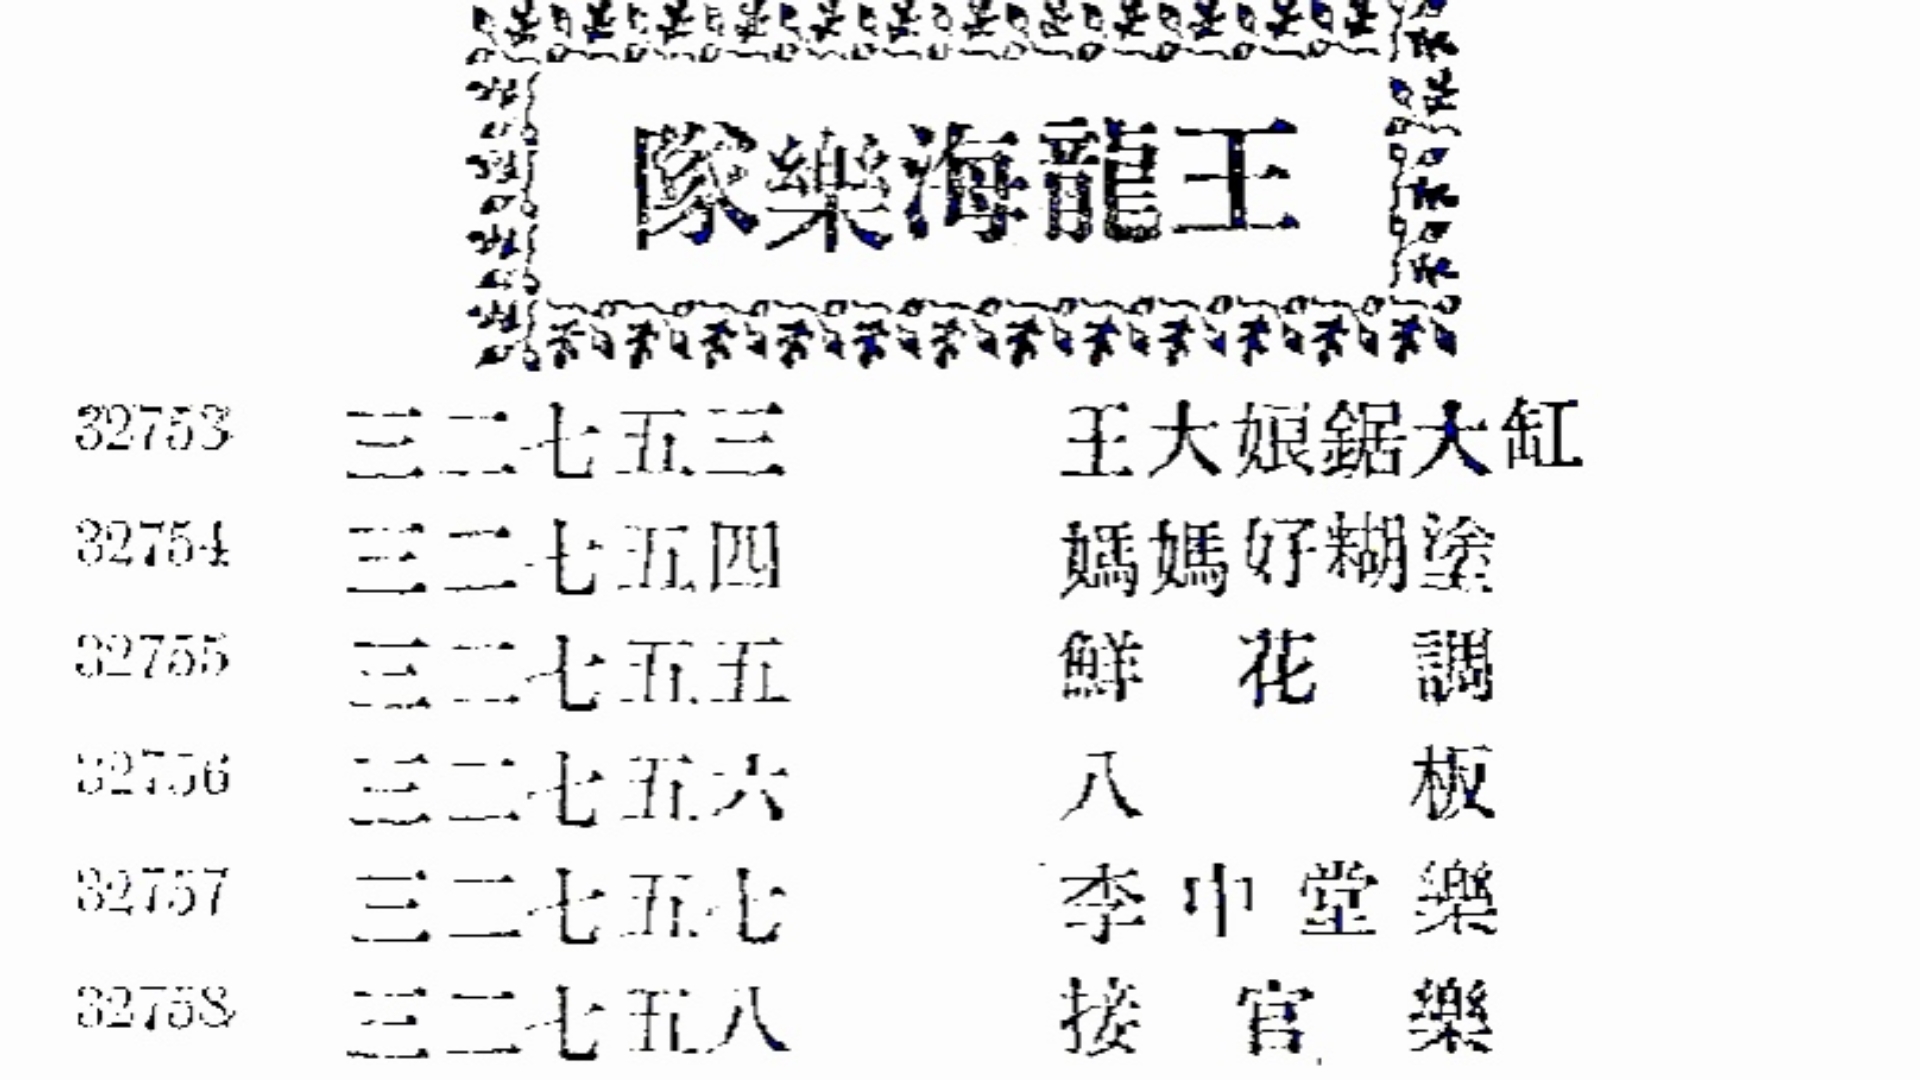 王龍海樂隊
32753 三二七五三 王大娘鋸大缸
32754 三二七五四 媽媽好糊塗
32755 三二七五五 鮮花調
32756 三二七五六 八板
32757 三二七五七 李中堂樂
32758 三二七五八 接官樂